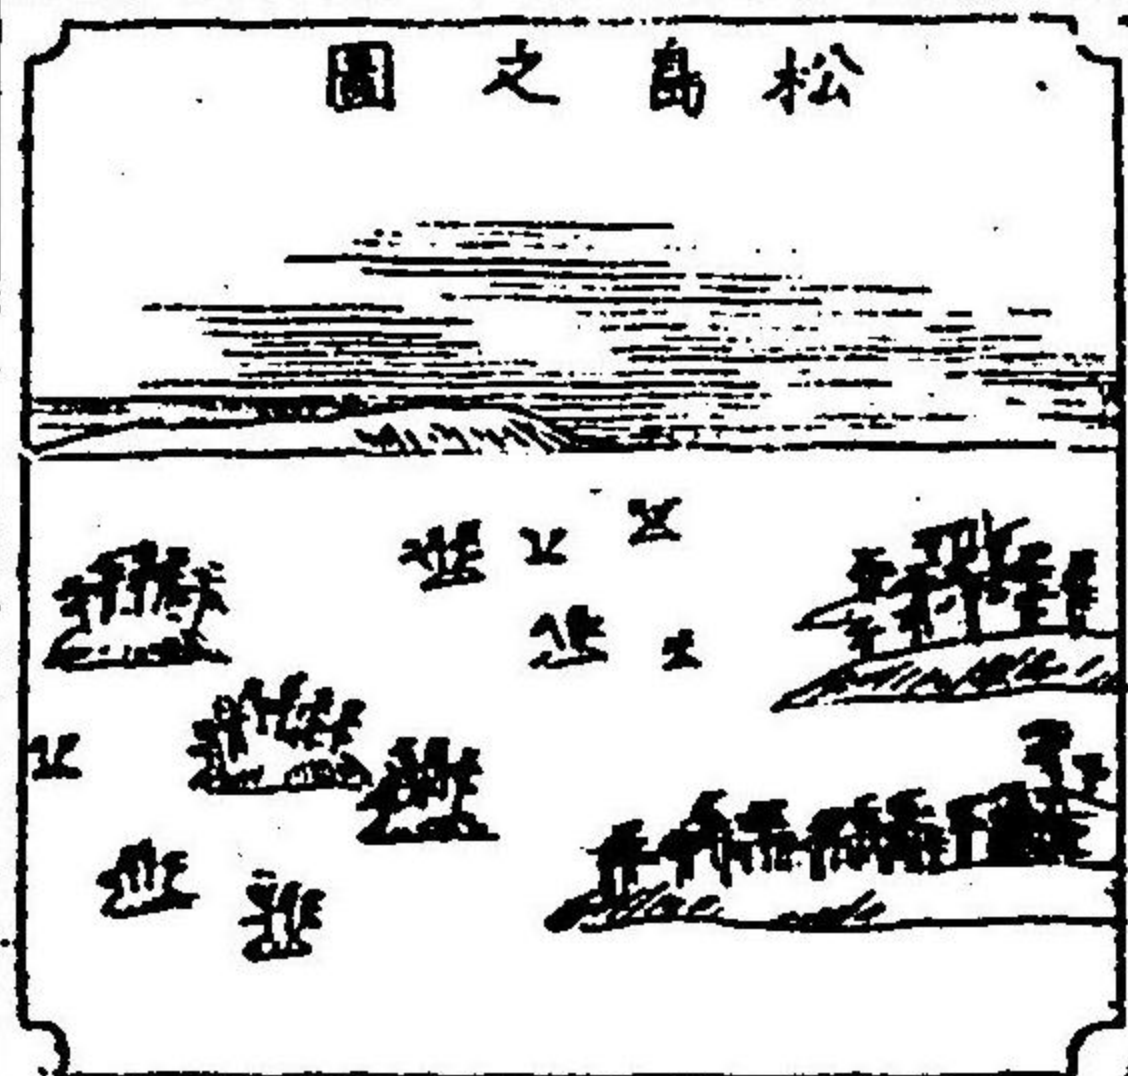 松島之圖